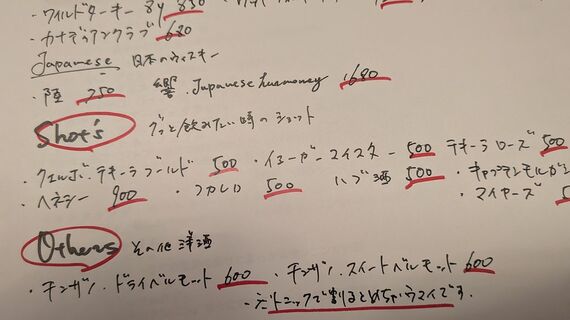 ・ワイルドターキー 8y 830
・カナディアンクラブ 680
Japanese 日本のウィスキー
・陸 750 響 Japanese harmoney 1680
Shot's グッと飲みたい時のショット
・クエルボ・テキーラゴールド 500 ・イエーガーマイスター 500 テキーラローズ 500
・ヘネシー 900 ・コカレロ 500 ハブ酒 500 ・キャプテンモルガン
マイヤーズ 5
Others その他洋酒
・チンザノ・ドライベルモット 600 ・チンザノ・スイートベルモット 600
トニックで割るとめちゃウマイです。